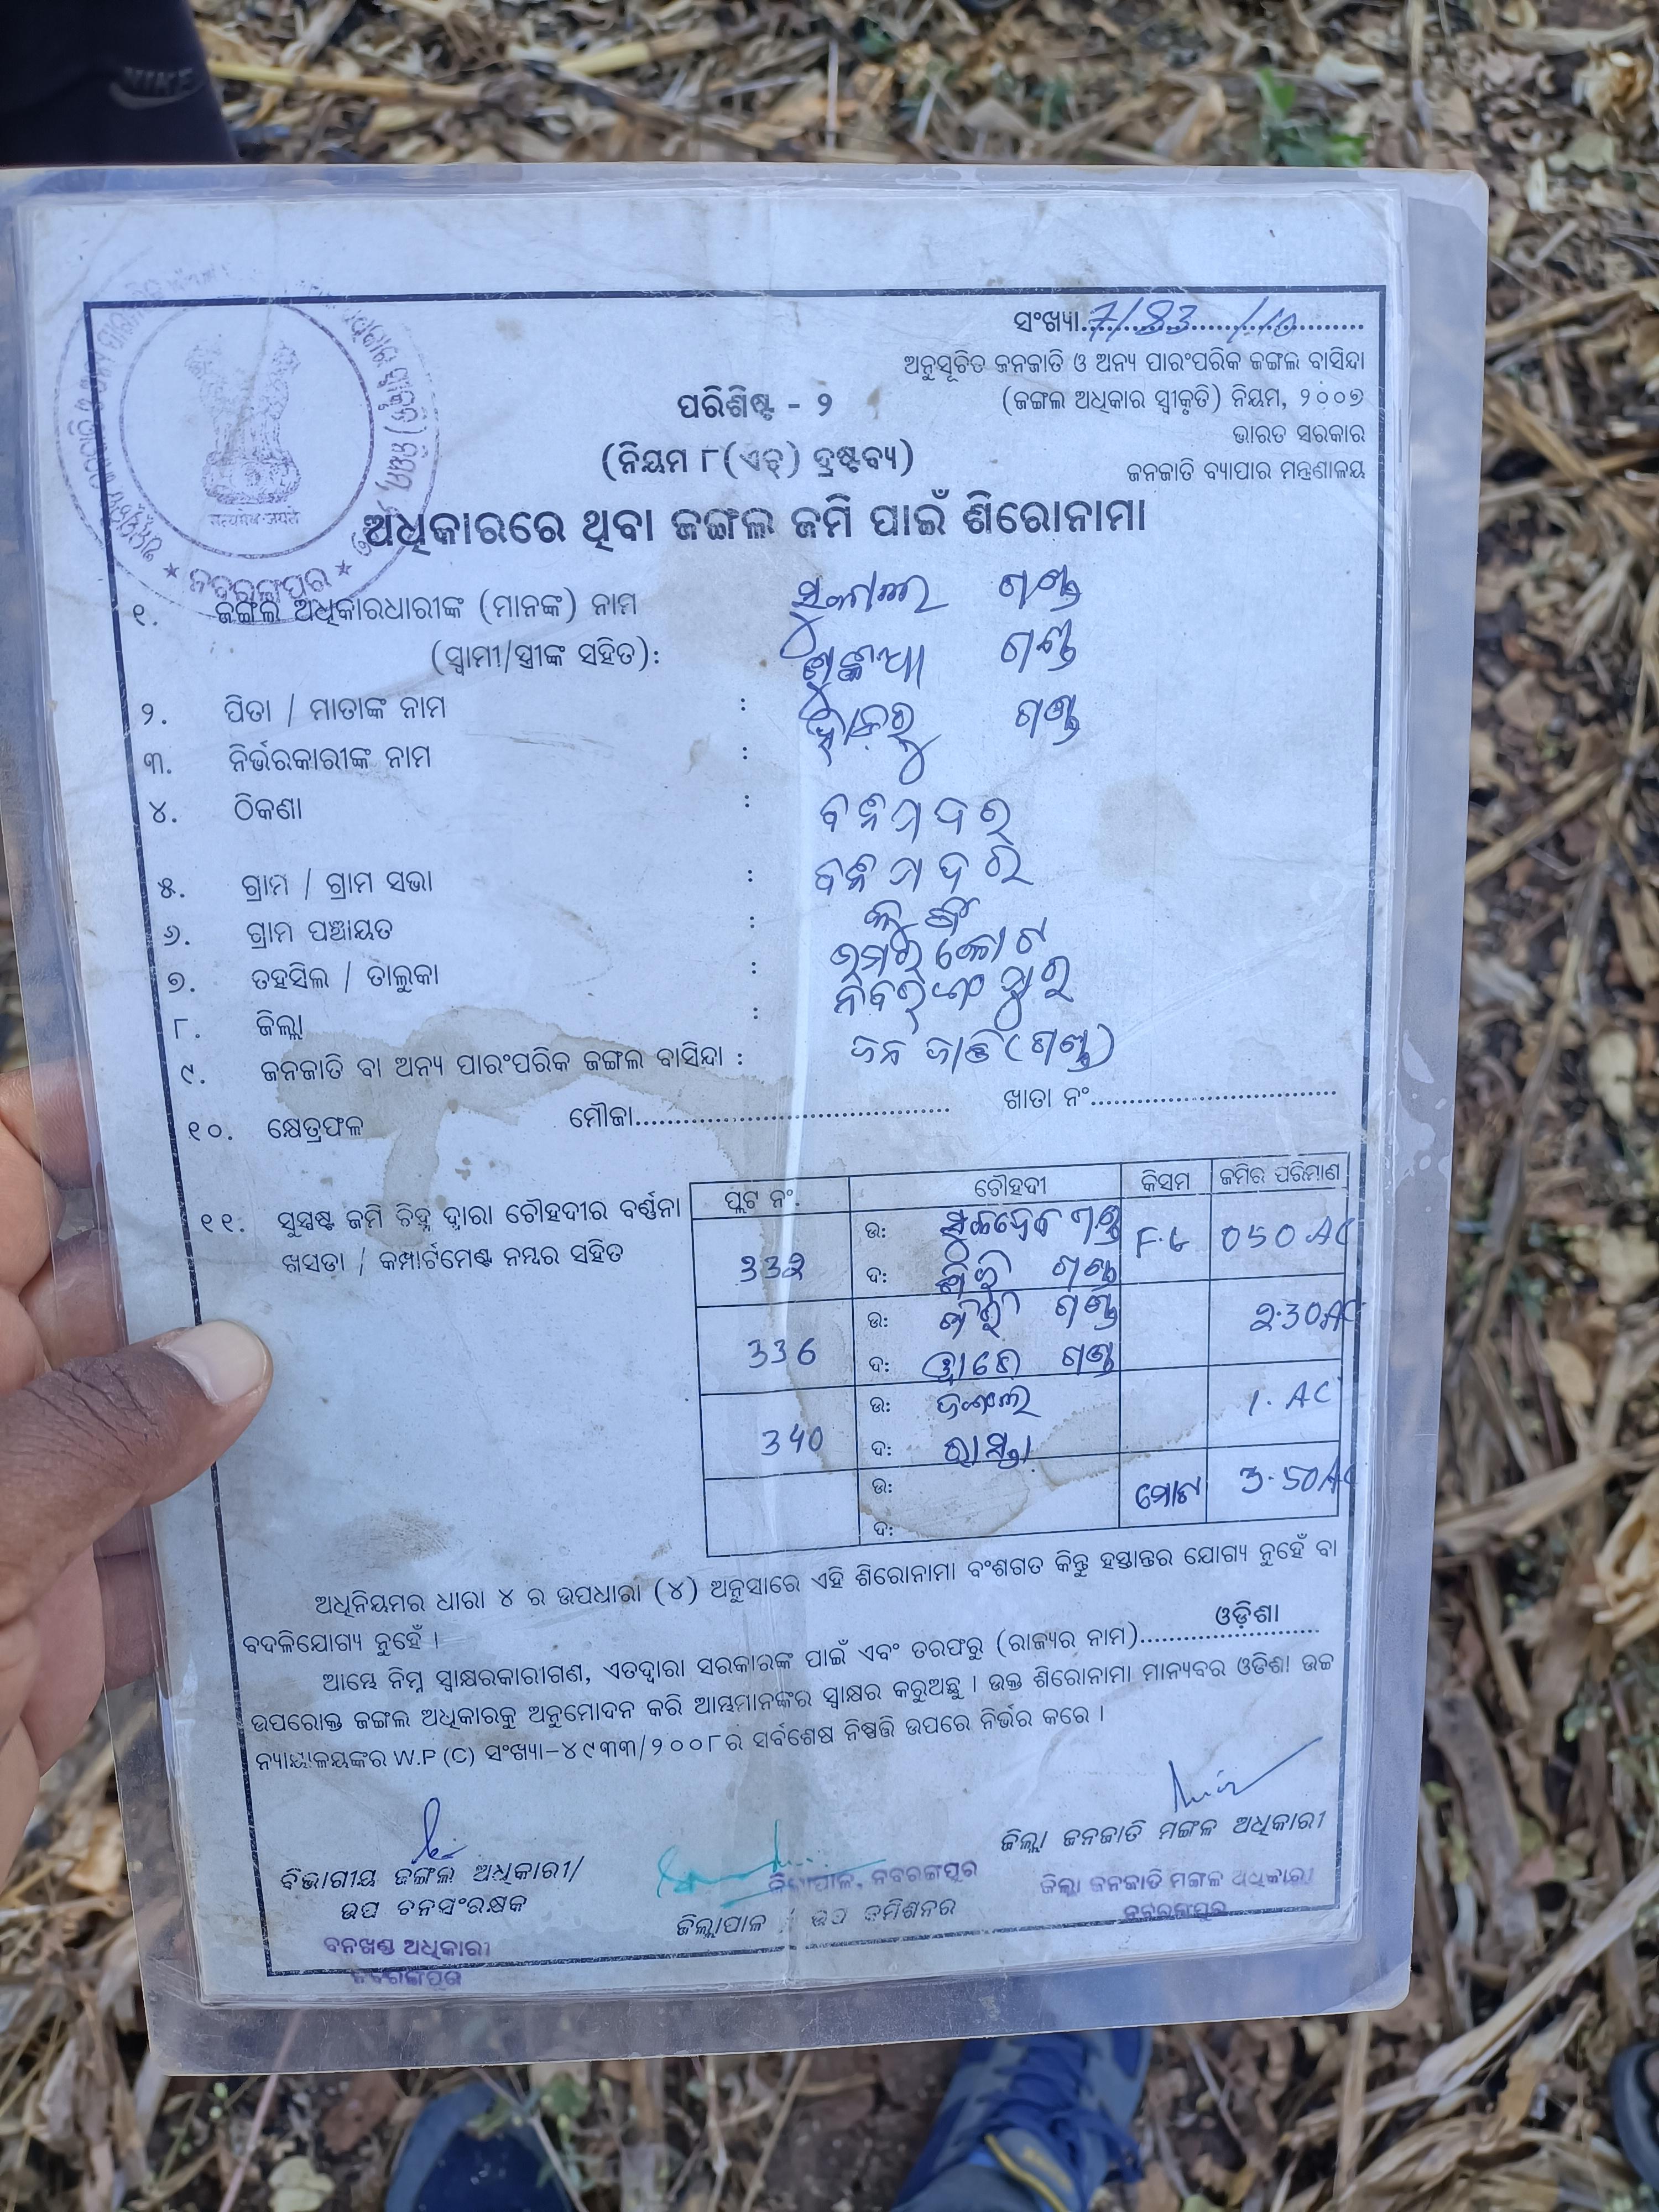 NIKE
ସଂଖ୍ୟା 7/83 /10
ଅନୁସୂଚିତ ଜନଜାତି ଓ ଅନ୍ୟ ପାରଂପରିକ ଜଙ୍ଗଲ ବାସିନ୍ଦା
(ଜଙ୍ଗଲ ଅଧିକାର ସ୍ୱୀକୃତି) ନିୟମ, ୨୦୦୭
ଭାରତ ସରକାର
ଜନଜାତି ବ୍ୟାପାର ମନ୍ତ୍ରଣାଳୟ
ପରିଶିଷ୍ଟ - ୨
(ନିୟମ ୮(ଏଚ୍) ଦ୍ରଷ୍ଟବ୍ୟ)
ଅଧିକାରରେ ଥିବା ଜଙ୍ଗଲ ଜମି ପାଇଁ ଶିରୋନାମା
ନବରଙ୍ଗପୁର
୧. ଜଙ୍ଗଲ ଅଧିକାରଧାରୀଙ୍କ (ମାନଙ୍କ) ନାମ ଗଣ୍ଡ
(ସ୍ୱାମୀ/ସ୍ତ୍ରୀଙ୍କ ସହିତ): ଗଣ୍ଡ
୨. ପିତା / ମାତାଙ୍କ ନାମ : ଗଣ୍ଡ
୩. ନିର୍ଭରକାରୀଙ୍କ ନାମ :
୪. ଠିକଣା :
୫. ଗ୍ରାମ / ଗ୍ରାମ ସଭା :
୬. ଗ୍ରାମ ପଞ୍ଚାୟତ :
୭. ତହସିଲ / ତାଲୁକା : ଉମରକୋଟ
୮. ଜିଲ୍ଲା : ନବରଂଗପୁର
୯. ଜନଜାତି ବା ଅନ୍ୟ ପାରଂପରିକ ଜଙ୍ଗଲ ବାସିନ୍ଦା : ଜନ ଜାତି (ଗଣ୍ଡ)
୧୦. କ୍ଷେତ୍ରଫଳ ମୌଜା ଖାତା ନଂ
୧୧. ସୁସ୍ପଷ୍ଟ ଜମି ଚିହ୍ନ ଦ୍ୱାରା ଚୌହଦୀର ବର୍ଣ୍ଣନା
ଖସଡା / କମ୍ପାର୍ଟମେଣ୍ଟ ନମ୍ବର ସହିତ
ପ୍ଲଟ ନଂ. ଚୌହଦୀ କିସମ ଜମିର ପରିମାଣ
332 ଉ: ଗଣ୍ଡ 050 AC
ଦ: ଗଣ୍ଡ
336 ଉ: ଗଣ୍ଡ 2.30 AC
ଦ: ଗଣ୍ଡ
340 ଉ: ଜଂଗଲ 1. AC
ଦ: ରାସ୍ତା
ଉ: ମୋଟ 3.50 AC
ଦ:
ଅଧିନିୟମର ଧାରା ୪ ର ଉପଧାରା (୪) ଅନୁସାରେ ଏହି ଶିରୋନାମା ବଂଶଗତ କିନ୍ତୁ ହସ୍ତାନ୍ତର ଯୋଗ୍ୟ ନୁହେଁ ବା
ବଦଳିଯୋଗ୍ୟ ନୁହେଁ ।
ଆମ୍ଭେ ନିମ୍ନ ସ୍ୱାକ୍ଷରକାରୀଗଣ, ଏତଦ୍ୱାରା ସରକାରଙ୍କ ପାଇଁ ଏବଂ ତରଫରୁ (ରାଜ୍ୟର ନାମ) ଓଡ଼ିଶା
ଉପରୋକ୍ତ ଜଙ୍ଗଲ ଅଧିକାରକୁ ଅନୁମୋଦନ କରି ଆମ୍ଭମାନଙ୍କର ସ୍ୱାକ୍ଷର କରୁଅଛୁ । ଉକ୍ତ ଶିରୋନାମା ମାନ୍ୟବର ଓଡିଶା ଉଚ୍ଚ
ନ୍ୟାୟାଳୟଙ୍କର W.P (C) ସଂଖ୍ୟା-୪୯୩୩/୨୦୦୮ର ସର୍ବଶେଷ ନିଷ୍ପତ୍ତି ଉପରେ ନିର୍ଭର କରେ ।
ବିଭାଗୀୟ ଜଙ୍ଗଲ ଅଧିକାରୀ/
ଉପ ବନସଂରକ୍ଷକ
ବନଖଣ୍ଡ ଅଧିକାରୀ
ନବରଙ୍ଗପୁର
ଜିଲ୍ଲାପାଳ, ନବରଙ୍ଗପୁର
ଜିଲ୍ଲାପାଳ / ଉପ କମିଶନର
ଜିଲ୍ଲା ଜନଜାତି ମଙ୍ଗଳ ଅଧିକାରୀ
ଜିଲ୍ଲା ଜନଜାତି ମଙ୍ଗଳ ଅଧିକାରୀ
ନବରଙ୍ଗପୁର